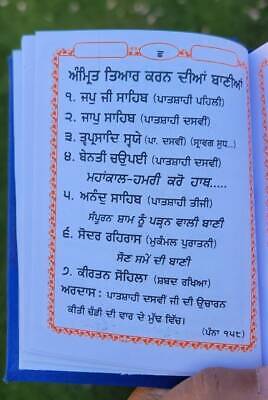 ੲ
ਅੰਮ੍ਰਿਤ ਤਿਆਰ ਕਰਨ ਦੀਆਂ ਬਾਣੀਆਂ
੧. ਜਪੁ ਜੀ ਸਾਹਿਬ (ਪਾਤਸ਼ਾਹੀ ਪਹਿਲੀ)
੨. ਜਾਪੁ ਸਾਹਿਬ (ਪਾਤਸ਼ਾਹੀ ਦਸਵੀਂ)
੩. ਤ੍ਵਪ੍ਰਸਾਦਿ ਸ੍ਵਯੇ (ਪਾ. ਦਸਵੀਂ) (ਸ੍ਰਾਵਗ ਸੁਧ...)
੪. ਬੇਨਤੀ ਚਉਪਈ (ਪਾਤਸ਼ਾਹੀ ਦਸਵੀਂ)
ਮਹਾਂਕਾਲ-ਹਮਰੀ ਕਰੋ ਹਾਥ.....
੫. ਅਨੰਦੁ ਸਾਹਿਬ (ਪਾਤਸ਼ਾਹੀ ਤੀਜੀ)
ਸੰਪੂਰਨ ਸ਼ਾਮ ਨੂੰ ਪੜ੍ਹਨ ਵਾਲੀ ਬਾਣੀ
੬. ਸੋਦਰ ਰਹਿਰਾਸ (ਮੁਕੰਮਲ ਪੁਰਾਤਨੀ)
ਸੌਣ ਸਮੇਂ ਦੀ ਬਾਣੀ
੭. ਕੀਰਤਨ ਸੋਹਿਲਾ (ਸ਼ਬਦ ਰਖਿਆ)
ਅਰਦਾਸ : ਪਾਤਸ਼ਾਹੀ ਦਸਵੀਂ ਜੀ ਦੀ ਉਚਾਰਨ
ਕੀਤੀ ਚੰਡੀ ਦੀ ਵਾਰ ਦੇ ਮੁੱਢ ਵਿੱਚ।
(ਪੰਨਾ ੧੫੮)